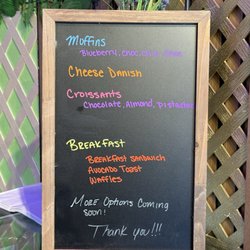 Muffins
Blueberry, Choc. Chip,
Cheese Danish
Croissants
Chocolate, Almond, Pistachio
Breakfast
Breakfast Sandwich
Avocado Toast
Waffles
More Options Coming
Soon!
Thank you!!!